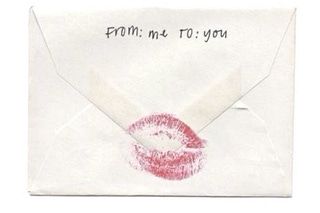 From: me to: you